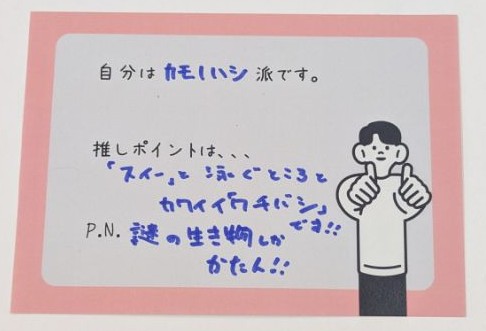 自分は カモノハシ 派です。
推しポイントは、、、
「スイー」と 泳ぐところと
カワイイ「クチバシ」
です!!
P.N. 謎の生き物しか
かたん!!